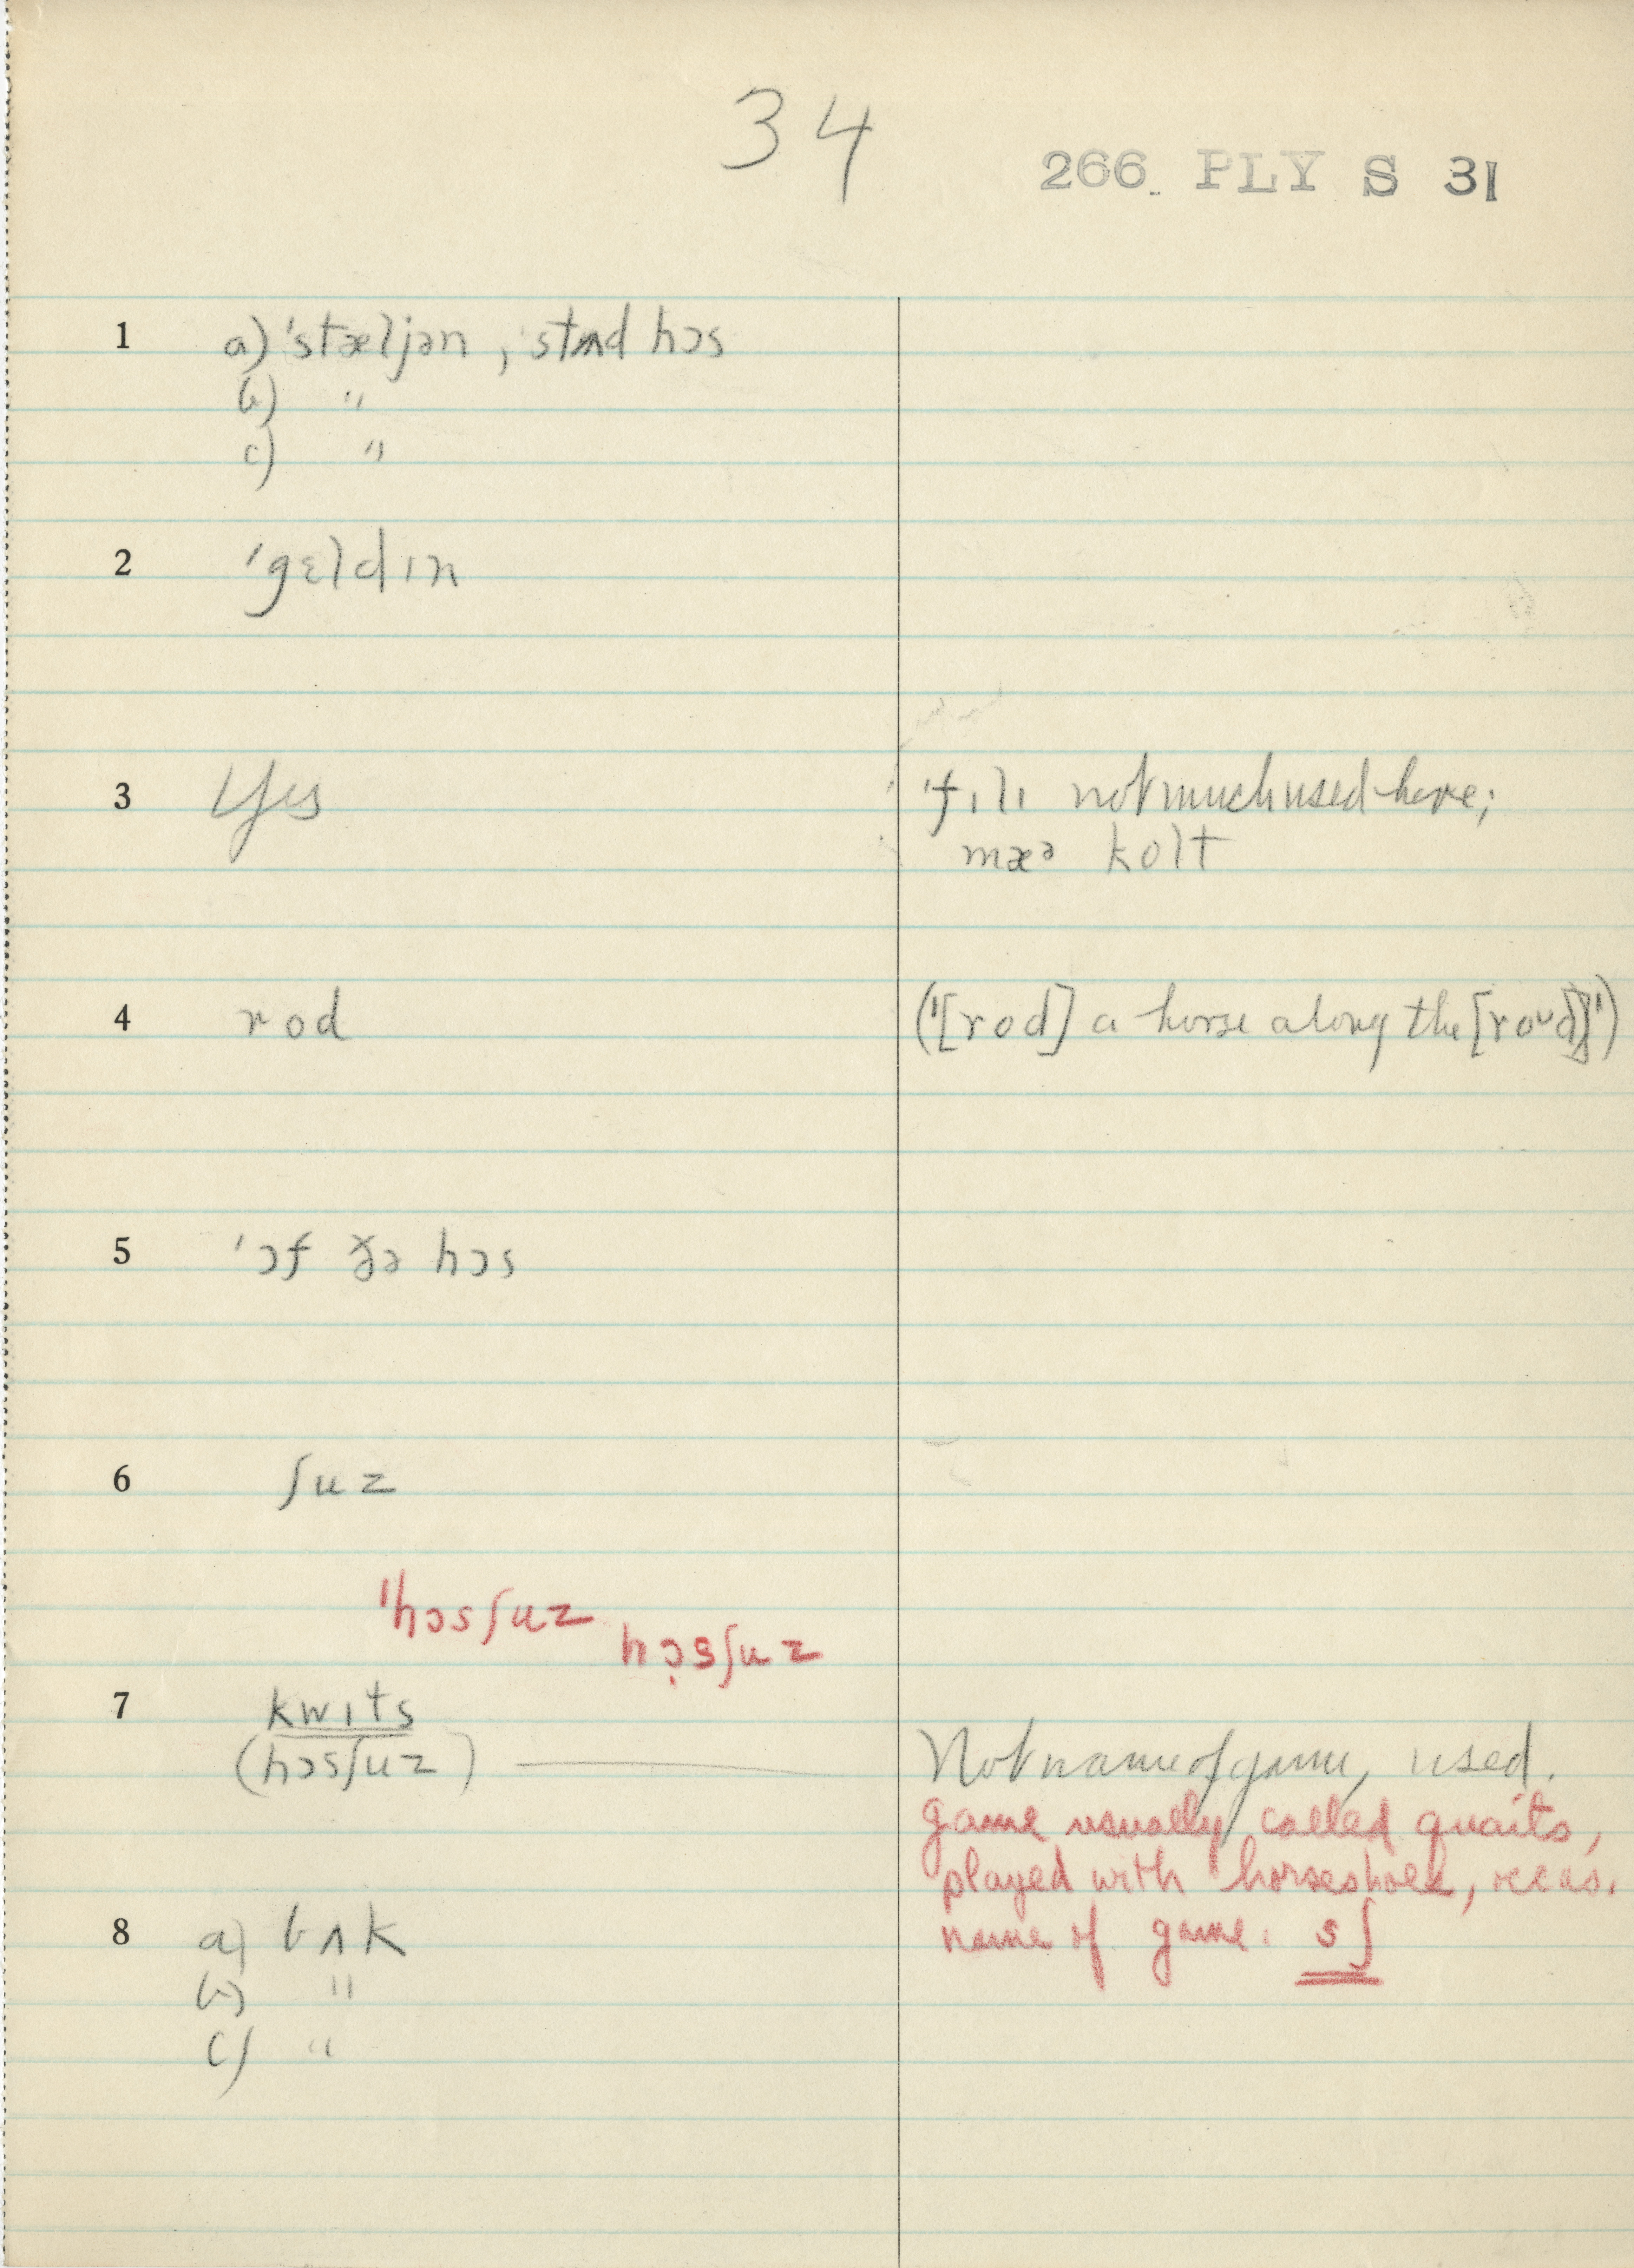 34
266. PLY S 31
1 a) 'stæljən, 'stʌd hɔs
b) "
c) "
2 'gɛldɪn
3 Yes 'fɪlɪ not much used here;
mæə kolt
4 rod ("[rod] a horse along the [roᴜd]")
5 'ɔf ðə hɔs
6 ʃuz
'hɔsʃuz
hɔ̣sʃuz
7 kwɪts
(hɔsʃuz) Not name of game, used.
game usually called quaits,
played with horseshoes, occas.
name of game. sʃ
8 a) bʌk
b) "
c) "